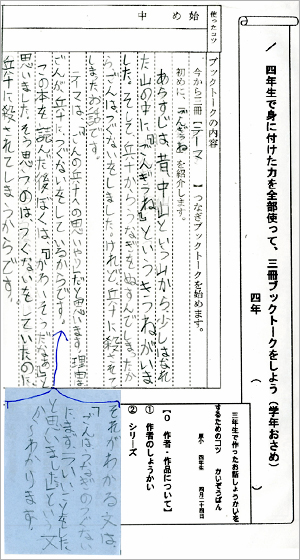 四年生で身に付けた力を全部使って、三冊ブックトークをしよう（学年おさめ）
四年（　　　　）
三年生で作ったお話しょうかいを
するためのコツ　かいぞうばん
四年生　四月二十四日
【〇　作者・作品について】
①　作者のしょうかい
②　シリーズ
使ったコツ
ブックトークの内容
始め
中
今から三冊【テーマ　　　】つなぎブックトークを始めます。
初めに、ごんぎつねを紹介します。
あらすじは、昔、中山という山から少しはなれ
た山の中に「ごんぎつね」というきつねがいま
した。そして兵十からうなぎをぬすんでしまったか
らごんはつぐないをしました。けれど兵十に殺されて
しまったお話です。
テーマは、「ごんの兵十への思いやり」だと思います。理由は
ごんが兵十につぐないをしているからです。
この本を読んだ後ぼくは、「かわいそうだなあ」と
思いました。そう思うのはつぐないをしていたのに
兵十に殺されてしまったからです。
それがわかる文は
「ごんはうなぎのつぐない
に、まず一ついいことをした
と思いました」という文
からわかります。